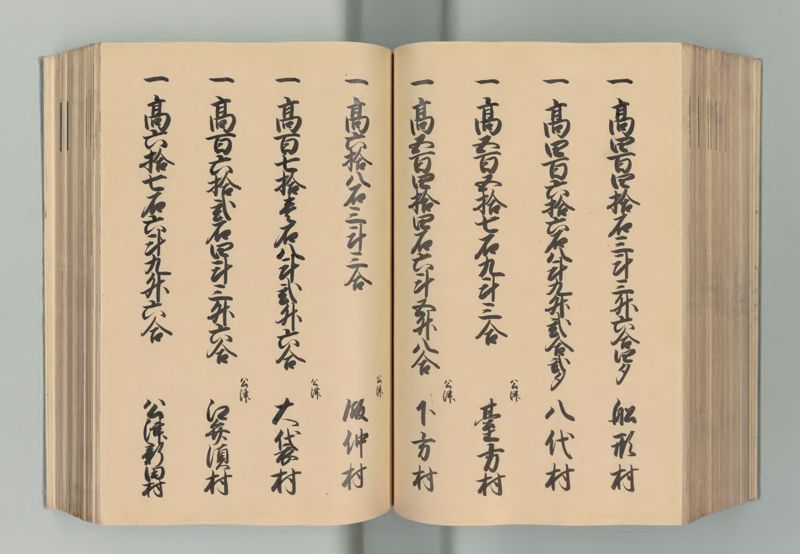 一 高四百四拾石三斗三升六合四夕 船形村
一 高四百六拾六石八斗九升弐合弐夕 八代村
一 高五百五拾七石九斗三合 公津 臺方村
一 高五百四拾四石六斗五升八合 公津 下方村
一 高六拾八石三斗三合 公津 飯仲村
一 高百七拾壱石八斗弐升六合 公津 大袋村
一 高百六拾弐石四斗三升六合 公津 江弁須村
一 高六拾七石六斗九升六合 公津新田村